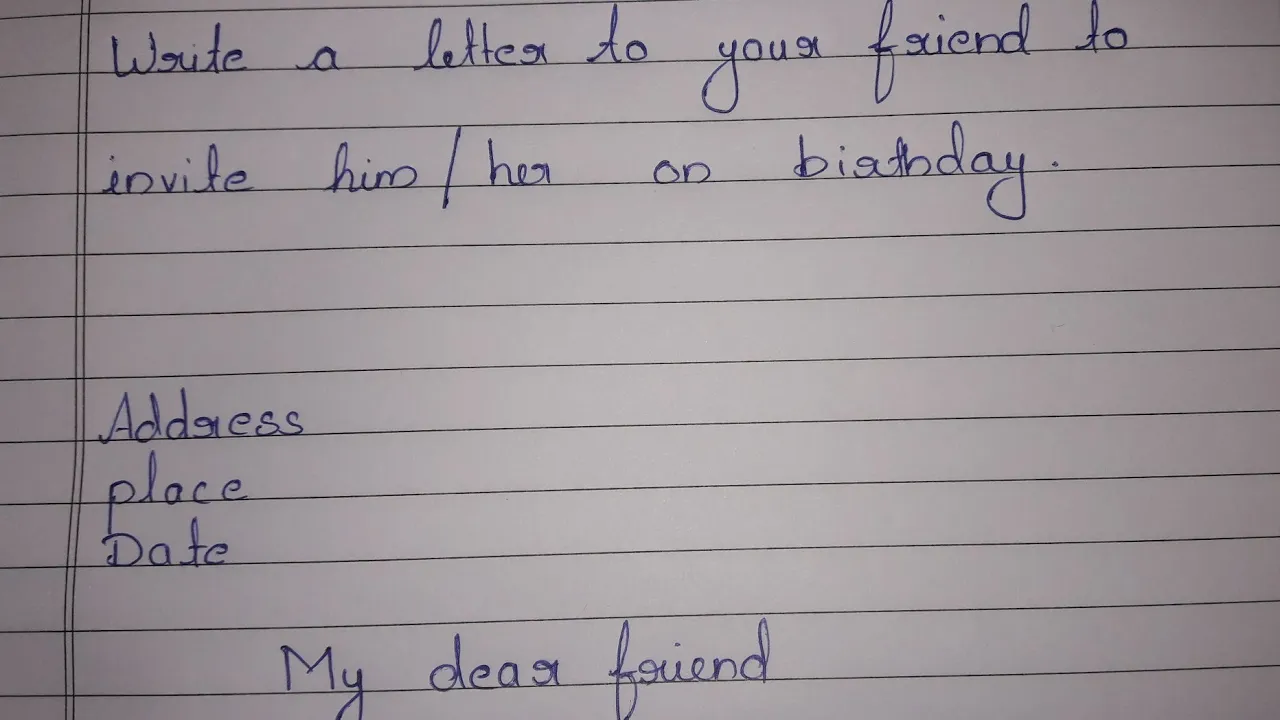 Write a letter to your friend to
invite him/her on birthday.
Address
place
Date
My dear friend